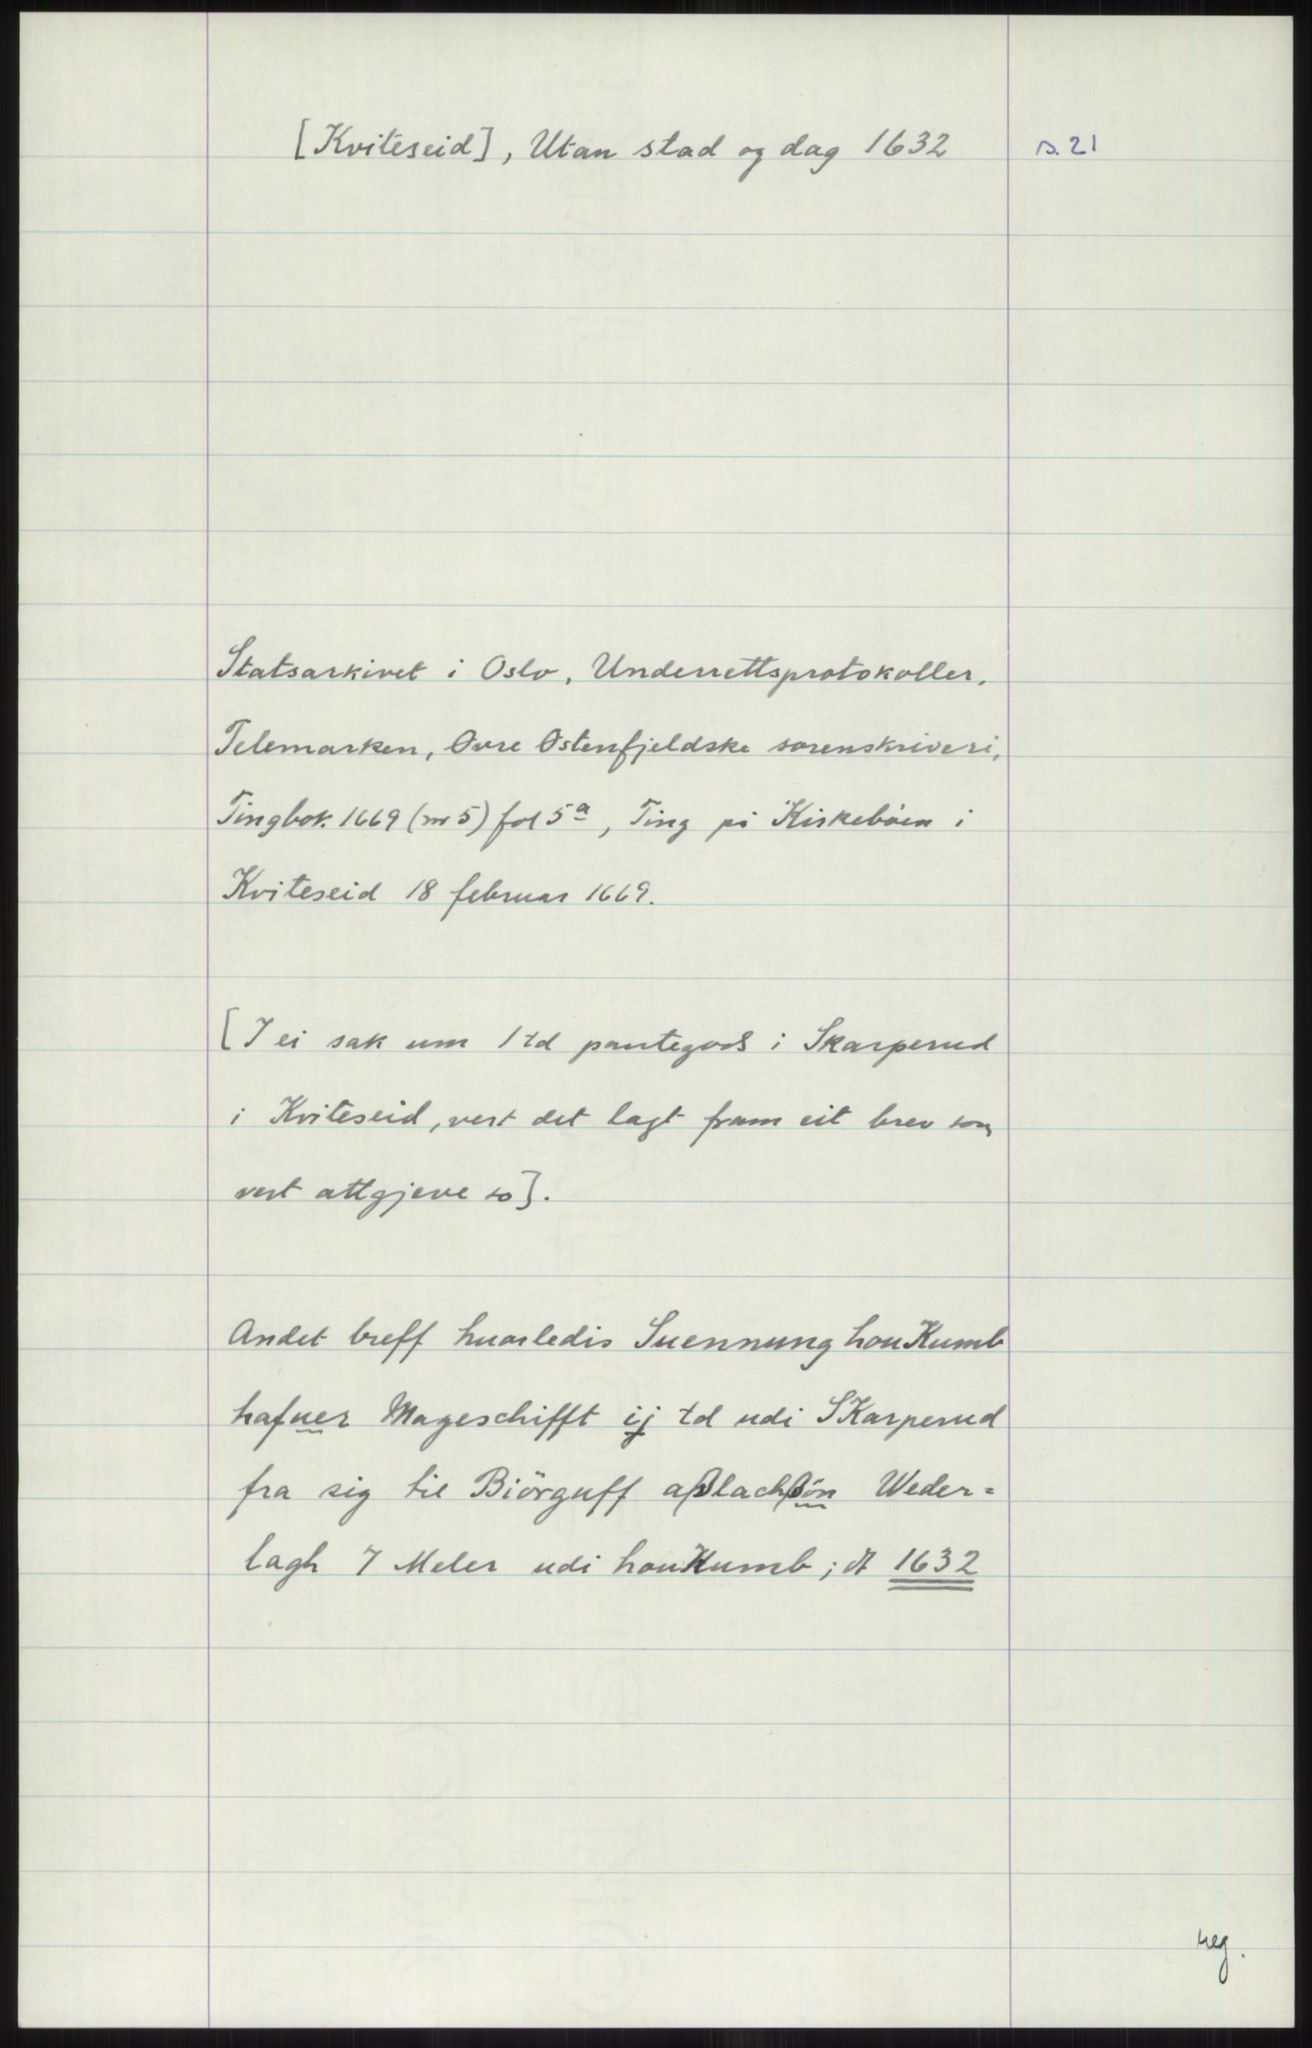 [Kviteseid], Utan stad og dag 1632
s. 21
Statsarkivet i Oslo, Underrettsprotokoller,
Telemarken, Øvre Østenfjeldske sorenskriveri,
Tingbok 1669 (nr 5) fol 5a, Ting på Kirkebøen i
Kviteseid 18 februar 1669.
[I ei sak um 1 td pantegods i Skarperud
i Kviteseid, vert det lagt fram eit brev som
vert attgjeve so].
Andet breff huorledis Suennung houKumb
hafuer Mageschifft ij td udi SKarperud
fra sig til Biörguff aßlachßön Weder=
lagh 7 Meler udi houKumb; dt 1632
reg.